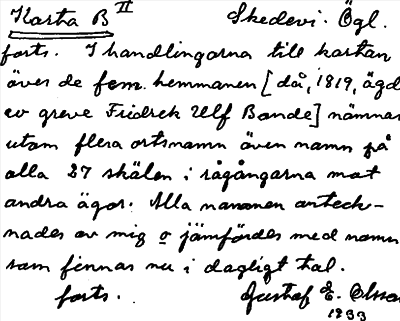 Karta B II Skedevi. Ögl.
forts. I handlingarna till kartan
över de fem hemmanen [då, 1819, ägd
av greve Fredrek Ulf Bonde] nämnas
utom flera ortsnamn även namn på
alla 27 skälen i rågångarna mot
andra ägor. Alla namnen anteck-
nades av mig o jämfördes med namn
som finnas nu i dagligt tal.
forts. Gustaf E. Olsson
1933